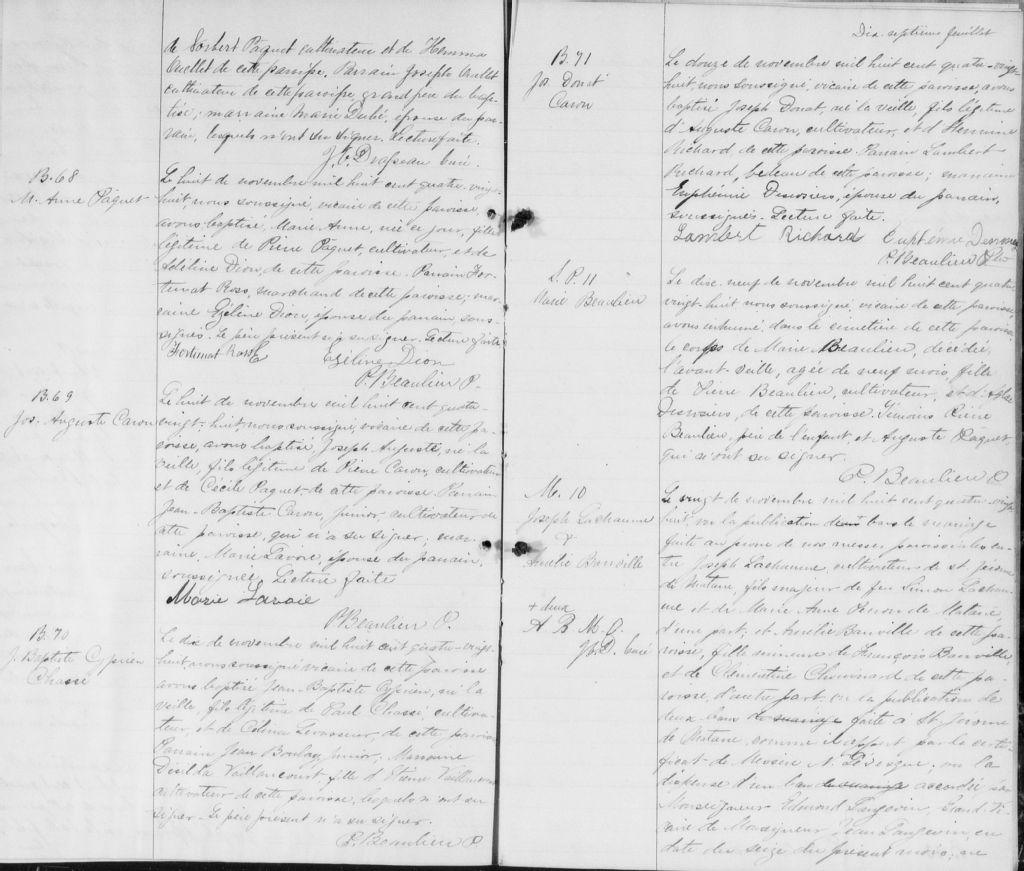 de Norbert Paquet cultivateur et de Hemma
Ouellet de cette paroisse, Parrain Joseph Ouellet
cultivateur de cette paroisse grand père du bap-
tisé; marraine Marie Dubé, épouse du par-
rain, lesquels n'ont su signer. Lecture faite.
J. O. Drapeau curé.
B. 68
M. Anne Paquet
Le huit de novembre mil huit cent quatre-vingt-
huit, nous soussigné, vicaire de cette paroisse,
avons baptisé, Marie Anne, née ce jour, fille
légitime de Pierre Paquet, cultivateur, et de
Adéline Dion, de cette paroisse. Parrain For-
tunat Ross, marchand de cette paroisse; mar-
raine Ezéline Dion, épouse du parrain, sous-
signés. Le père présent n'a su signer. Lecture faite
Fortunat Ross Ezéline Dion
P. Beaulieu P.
B. 69
Jos. Auguste Caron
Le huit de novembre mil huit cent quatre-
vingt-huit, nous soussigné, vicaire de cette pa-
roisse, avons baptisé, Joseph Auguste, né la
veille, fils légitime de Pierre Caron, cultivateur
et de Cécile Paquet de cette paroisse. Parrain
Jean-Baptiste Caron, junior, cultivateur de
cette paroisse, qui n'a su signer; mar-
raine, Marie Lavoie, épouse du parrain,
soussignée. Lecture faite
Marie Lavoie
P. Beaulieu P.
B. 70
J. Baptiste Cyprien
Chassé
Le dix de novembre mil huit cent quatre-vingt-
huit, nous soussigné vicaire de cette paroisse
avons baptisé Jean-Baptiste Cyprien, né la
veille, fils légitime de Paul Chassé, cultiva-
teur, et de Colina Levasseur, de cette paroisse
Parrain Jean Boulay, junior, Marraine
Vaillancourt fille d'Etienne Vaillancourt
cultivateur de cette paroisse, lesquels n'ont su
signer. Le père présent n'a su signer.
P. Beaulieu P.
Dix septième feuillet
B. 71
Jos. Donat
Caron
Le douze de novembre mil huit cent quatre-vingt-
huit, nous soussigné, vicaire de cette paroisse, avons
baptisé Joseph Donat, né la veille, fils légitime
d'Auguste Caron, cultivateur, et d'Hermine
Richard, de cette paroisse. Parrain Lambert
Richard, bedeau de cette paroisse; marraine
Euphémie Desrosiers, épouse du parrain,
soussignés. Lecture faite.
Lambert Richard Euphémie Desrosiers
P. Beaulieu Ptre
S. P. 11
Marie Beaulieu
Le dix-neuf de novembre mil huit cent quatre
vingt-huit nous soussigné, vicaire de cette paroisse,
avons inhumé, dans le cimetière de cette paroisse
le corps de Marie Beaulieu, décédée
l'avant-veille, agée de neuf mois, fille
de Pierre Beaulieu, cultivateur, et d'Aglaé
Desrosiers, de cette paroisse. Témoins Pierre
Beaulieu, père de l'enfant, et Auguste Paquet,
qui n'ont su signer.
P. Beaulieu P.
M. 10
Joseph Lachaume
&
Aurélie Banville
+ deux
A R M O
J. O. D. curé
Le vingt de novembre mil huit cent quatre-vingt
huit, vu la publication d'un ban de mariage
faite au prône de nos messes paroissiales en-
tre Joseph Lachaume cultivateur de St. Jérôme
de Matane, fils majeur de feu Simon Lachau-
me et de Marie Anne de Matane,
d'une part; et Aurélie Banville de cette pa-
roisse, fille mineure de François Banville,
et de Clémentine Chouinard de cette pa-
roisse, d'autre part, vu la publication de
deux bans de mariage faite à St. Jérôme
de Matane, comme il appert par le certi-
ficat de Messire N. Lévesque; vu la
dispense d'un ban de mariage accordée par
Monseigneur Edmond Langevin, Grand Vi-
caire de Monseigneur Jean Langevin, en
date du seize du présent mois; ne